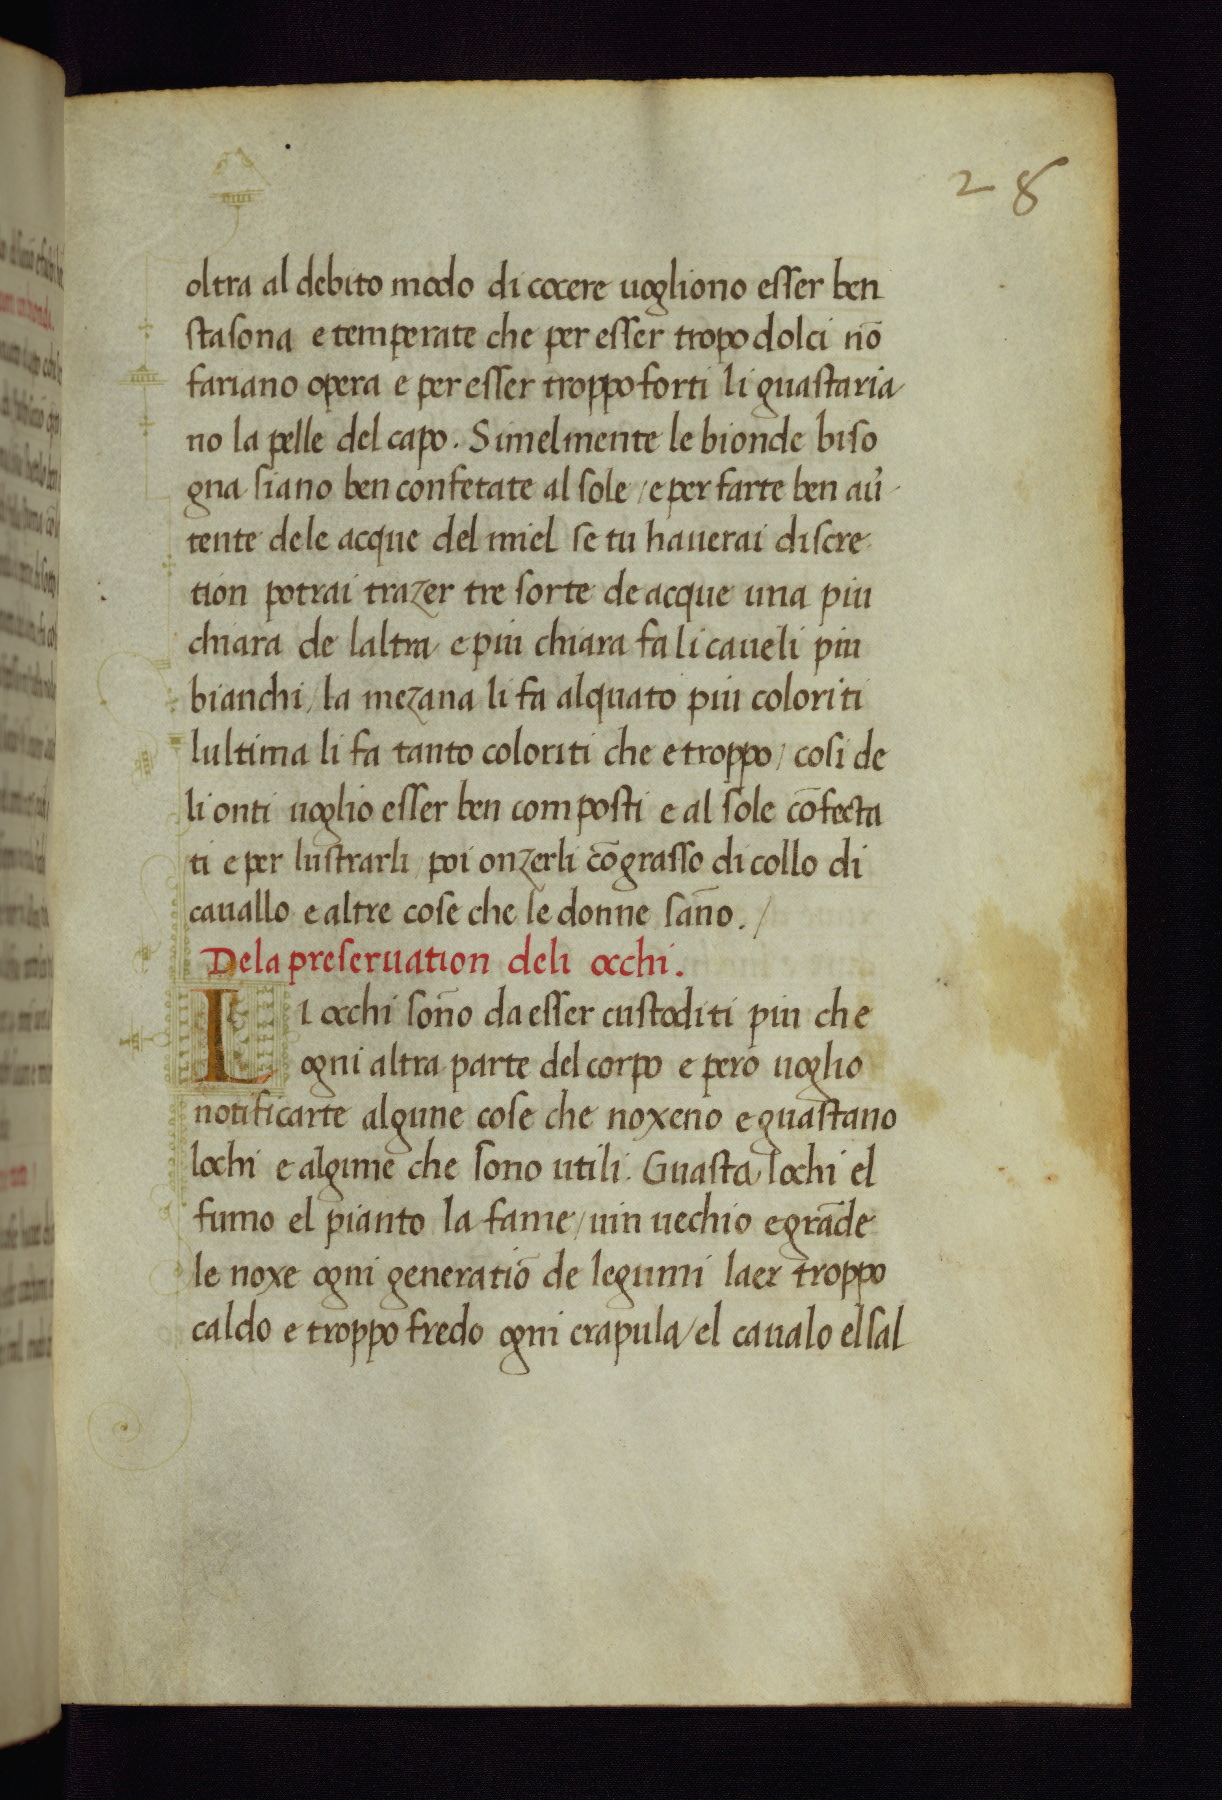 28
oltra al debito modo di cocere uogliono esser ben
stasona e temperate che per esser tropo dolci nō
fariano opera e per esser troppo forti li guastaria
no la pelle del capo. Simelmente le bionde biso
gna siano ben confetate al sole / e per farte ben au᷑
tente dele acque del miel se tu hauerai discre
tion potrai trazer tre sorte de acque una piu
chiara de laltra e piu chiara fa li caueli piu
bianchi / la mezana li fa alquato piu coloriti
lultima li fa tanto coloriti che e troppo / cosi de
li onti uoglio esser ben composti e al sole cōfecta
ti e per lustrarli poi onzerli cō grasso di collo di
cauallo e altre cose che le donne sāno. /
Dela preseruation deli occhi.
LI occhi sōno da esser custoditi piu che
ogni altra parte del corpo e però uoglio
notificarte algune cose che noxeno e guastano
lochi e algune che sono utili. Guasta lochi el
fumo el pianto la fame / uin uechio e grāde
le noxe ogni generatiō de legumi laer troppo
caldo e troppo fredo ogni crapula / el caualo el sal